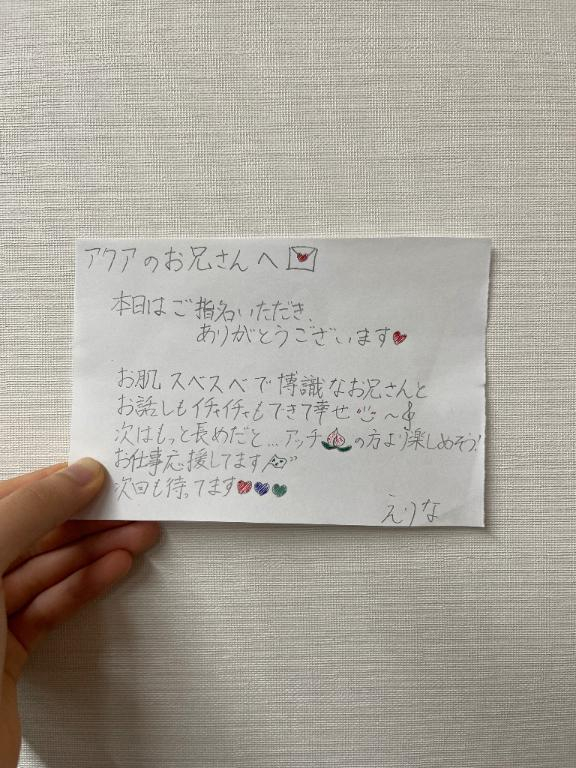 アクアのお兄さんへ
本日はご指名いただき、
ありがとうございます
お肌スベスベで博識なお兄さんと
お話しもイチャイチャもできて幸せ〜
次はもっと長めだと...アッチの方より楽しめそう!
お仕事応援してます
次回も待ってます
えりな